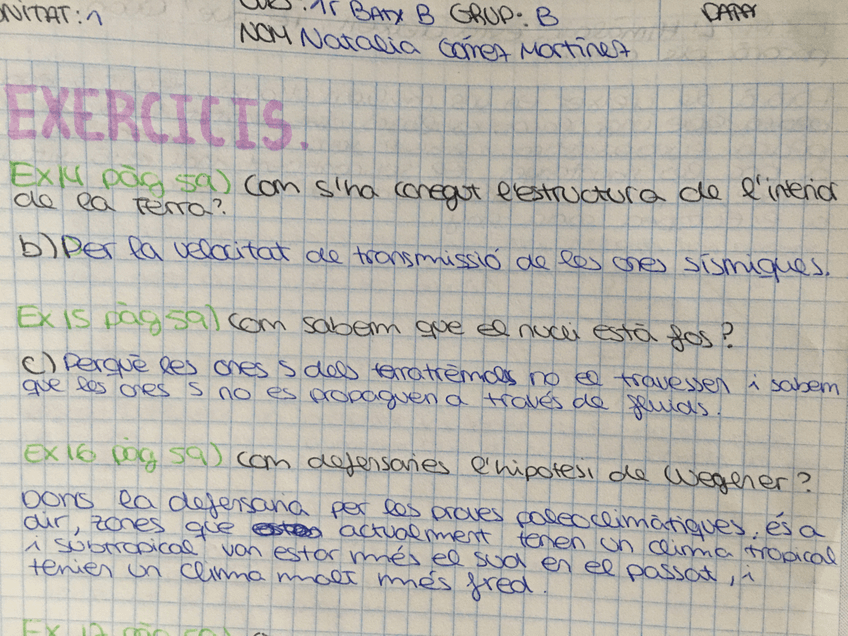 UNITAT: 1
CURS: 1r BATX B GRUP: B
DATA
NOM Natalia Gómez Martínez
EXERCICIS.
Ex 14 pàg 59) Com s'ha conegut l'estructura de l'interior
de la Terra?
b) Per la velocitat de transmissió de les ones sísmiques.
Ex 15 pàg 59) Com sabem que el nucli està fos?
c) Perquè les ones s dels terratrèmols no el travessen i sabem
que les ones s no es propaguen a través de fluids.
Ex 16 pàg 59) Com defensaries l'hipotesi de Wegener?
Doncs la defensaria per les proves paleoclimàtiques, és a
dir, zones que actualment tenen un clima tropical
i subtropical van estar més el sud en el passat, i
tenien un clima molt més fred.
Ex 17 pàg 59)